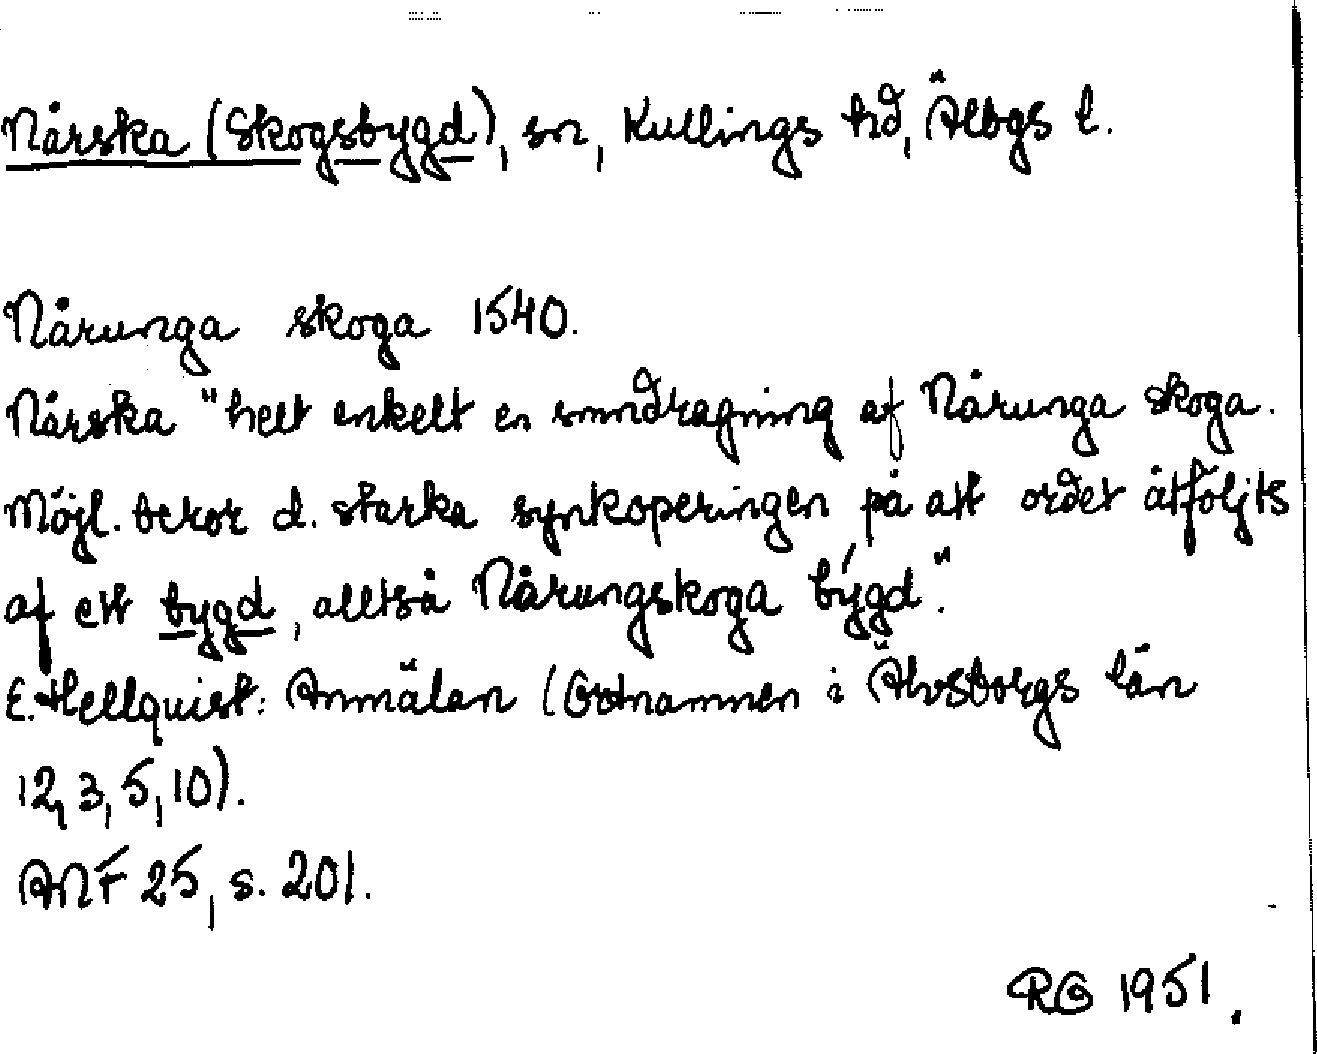 Nårska (Skogsbygd), sn, Kullings hd, Älbgs l.
Nårunga skoga 1540.
Nårska "helt enkelt en smndragning af Nårunga skoga.
Möjl. beror d. starka synkoperingen på att ordet åtföljts
af ett bygd, alltså Nårungskoga býgd".
E. Hellquist: Anmälan (Ortnamnen i Älvsborgs län
12, 3, 5, 10).
ANF 25, s. 201.
RG 1951.